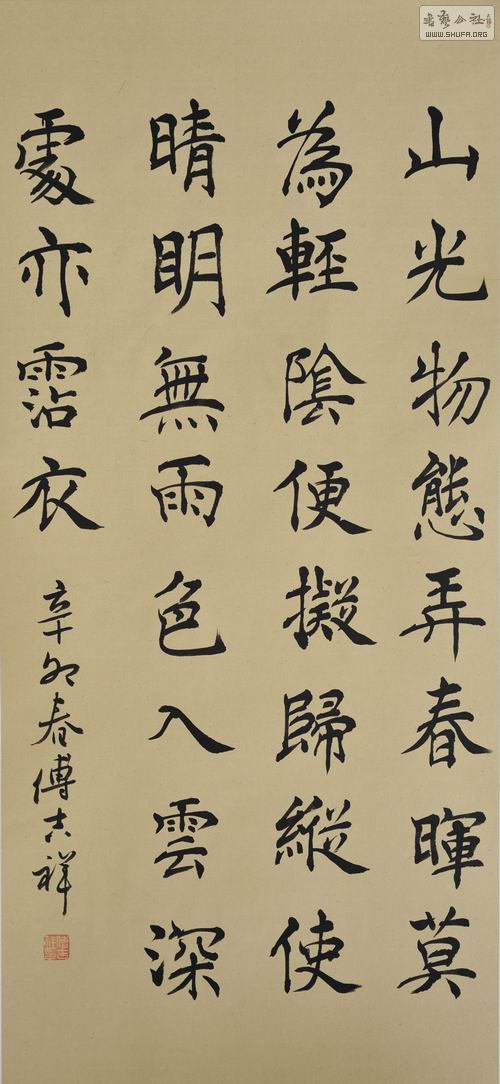 山光物態弄春暉莫
為輕陰便擬歸縱使
晴明無雨色入雲深
處亦霑衣
辛卯春傅吉祥
书艺公社
WWW.SHUFA.ORG